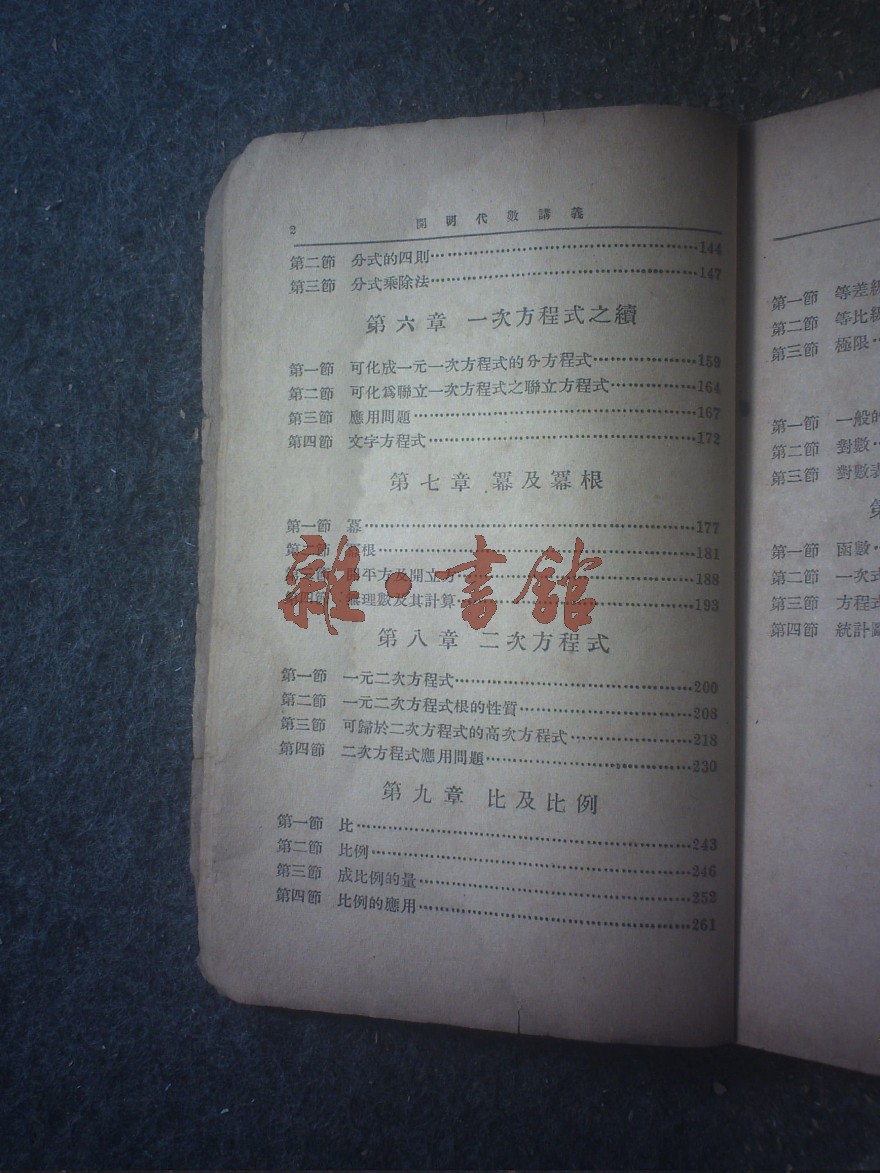 2 開明代數講義
第二節 分式的四則………144
第三節 分式乘除法………147
第六章 一次方程式之續
第一節 可化成一元一次方程式的分方程式………159
第二節 可化爲聯立一次方程式之聯立方程式………164
第三節 應用問題………167
第四節 文字方程式………172
第七章 冪及冪根
第一節 冪………177
第二節 冪根………181
第三節 開平方及開立方………188
第四節 無理數及其計算………193
雜·書館
第八章 二次方程式
第一節 一元二次方程式………200
第二節 一元二次方程式根的性質………208
第三節 可歸於二次方程式的高次方程式………218
第四節 二次方程式應用問題………230
第九章 比及比例
第一節 比………243
第二節 比例………246
第三節 成比例的量………252
第四節 比例的應用………261
第一節 等差級
第二節 等比級
第三節 極限…
第一節 一般的
第二節 對數…
第三節 對數表
第
第一節 函數…
第二節 一次式
第三節 方程式
第四節 統計圖